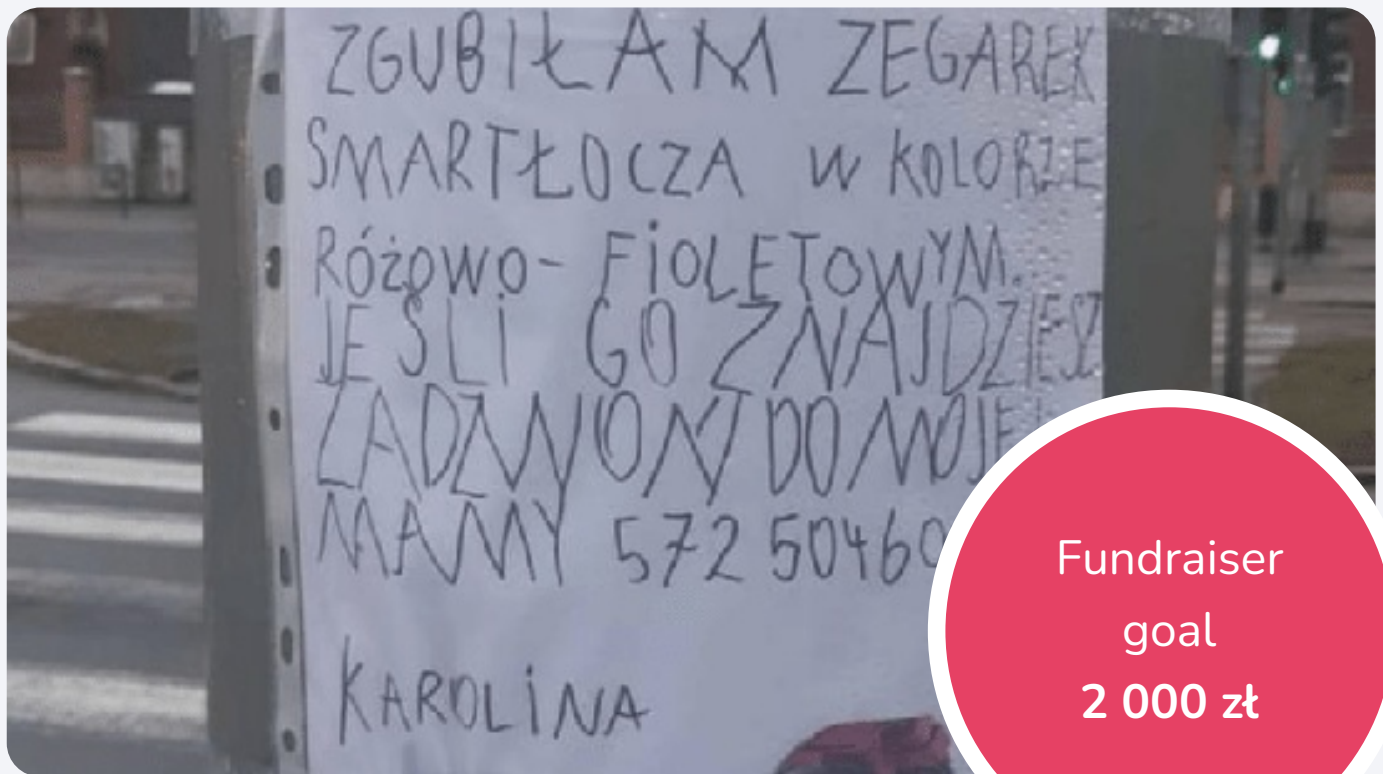 ZGUBIŁAM ZEGAREK
SMARTŁOCZA W KOLORZE
RÓŻOWO- FiOLETOWYM.
JEŚLi GO ZNAJDZIESZ
ZADZWOŃ DO MOJEJ
MAMY 572 50460
KAROLiNA
Fundraiser
goal
2 000 zł